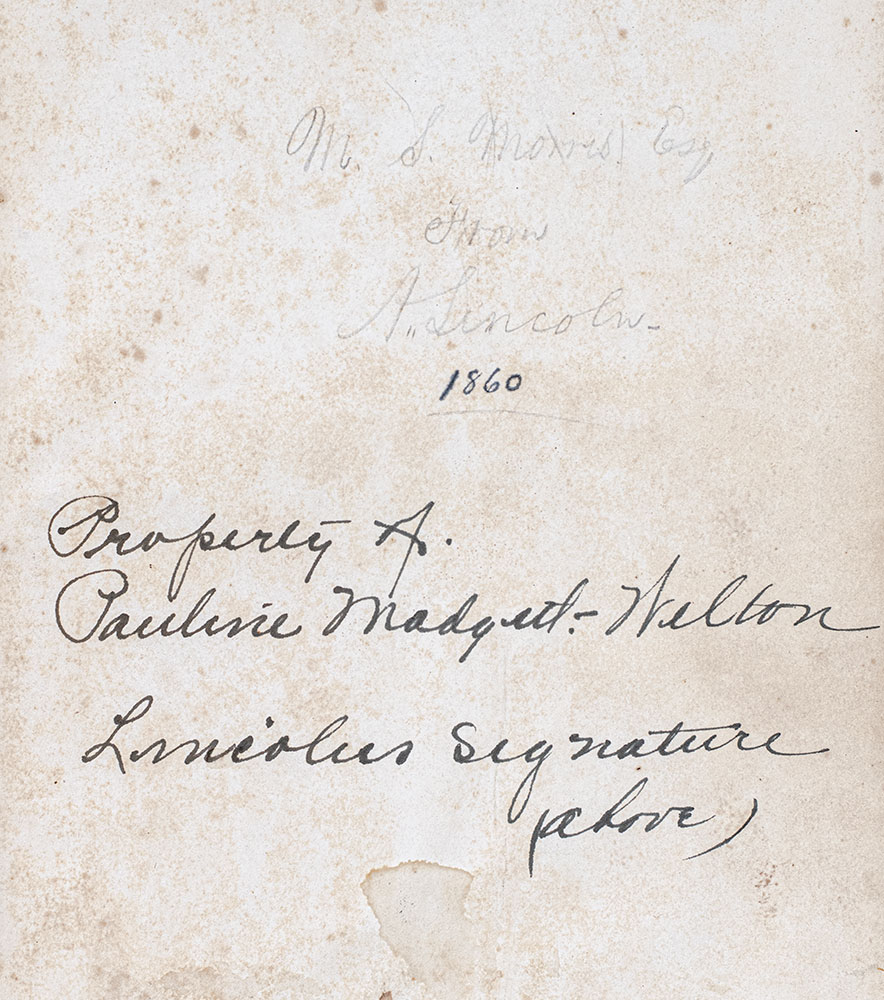 M. S. Morris Esq
From
A. Lincoln-
1860
Property of.
Pauline Madgett-Welton
Lincolns Signature
(above)